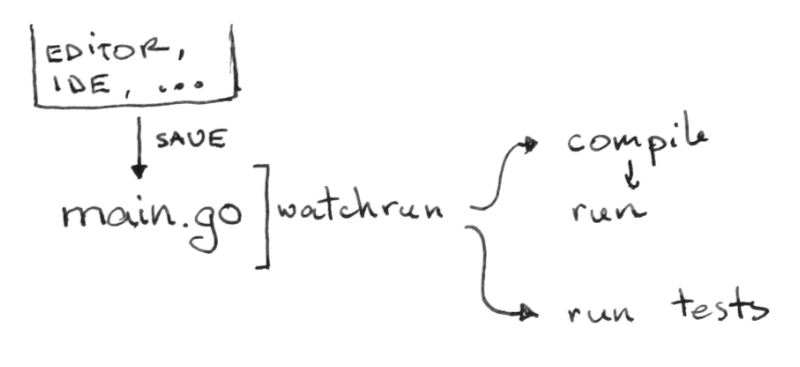 EDITOR,
IDE, ...
SAVE
main.go ] watchrun
compile
run
run tests